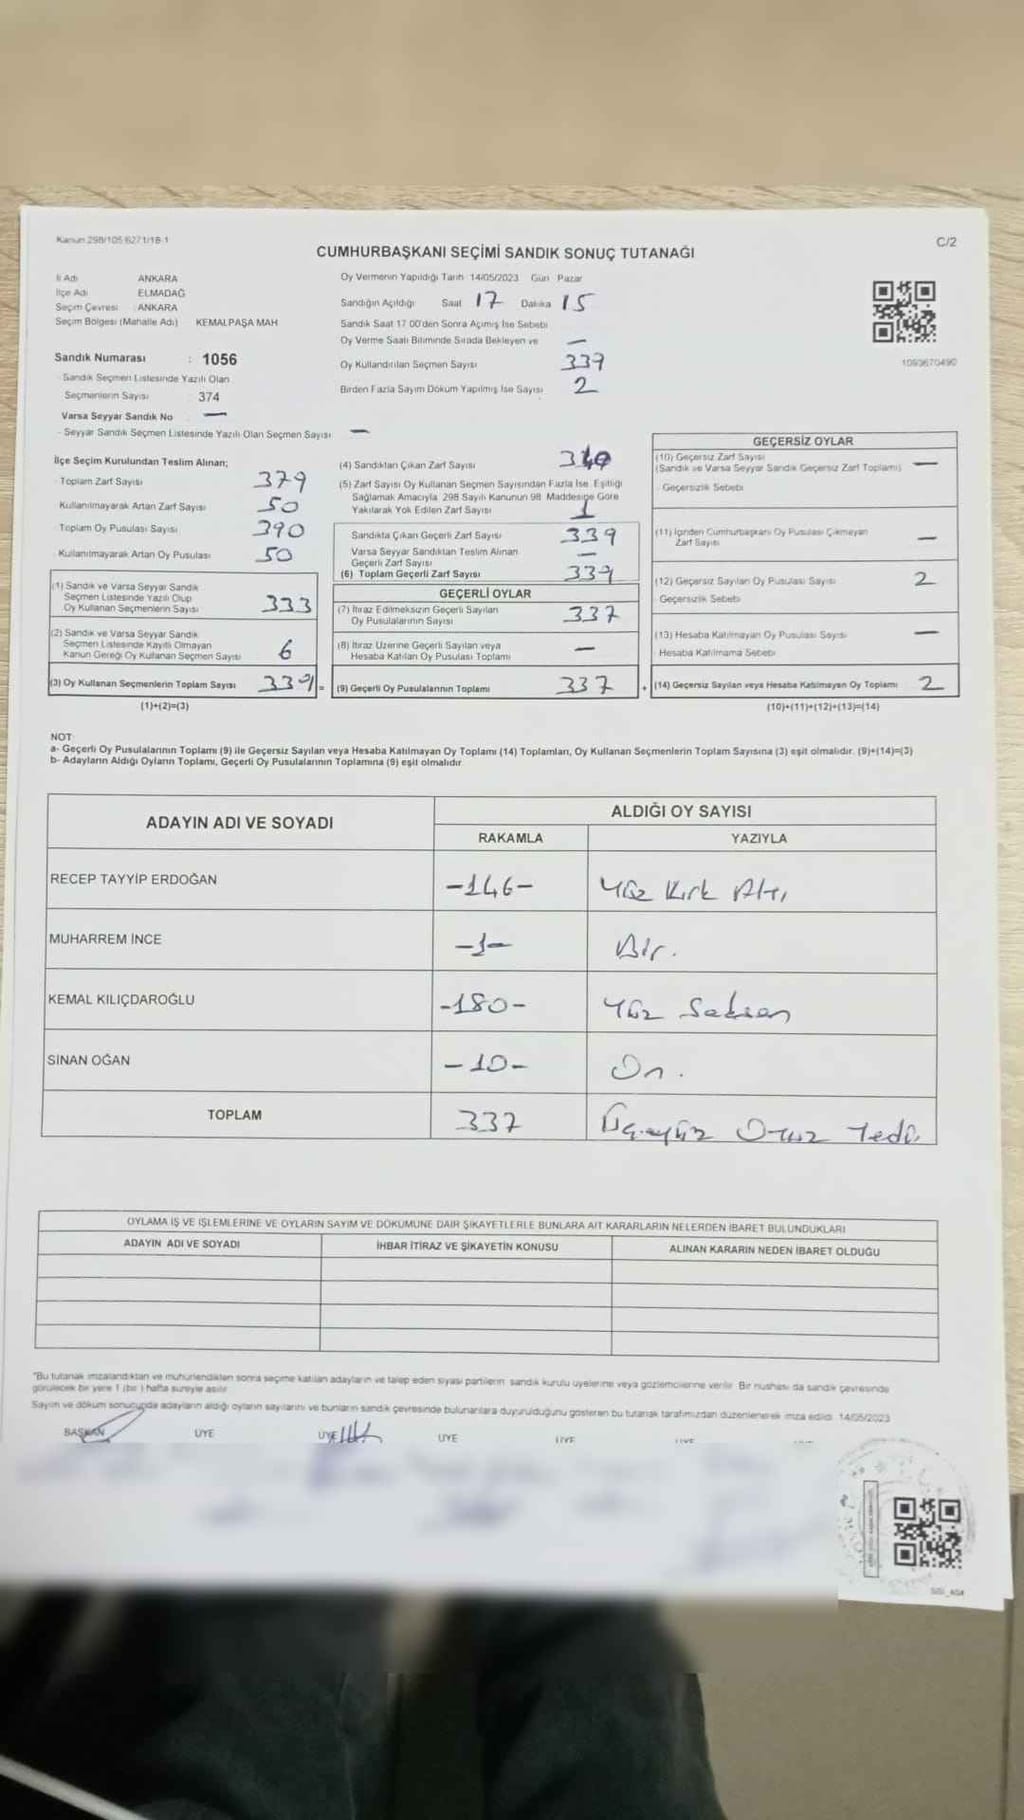 Kanun 298/105 6271/18-1
C/2
CUMHURBAŞKANI SEÇİMİ SANDIK SONUÇ TUTANAĞI
İl Adı ANKARA
İlçe Adı ELMADAĞ
Seçim Çevresi : ANKARA
Seçim Bölgesi (Mahalle Adı) KEMALPAŞA MAH
Oy Vermenin Yapıldığı Tarih 14/05/2023 Gün Pazar
Sandığın Açıldığı Saat 17 Dakika 15
Sandık Saat 17 00'den Sonra Açımış İse Sebebi
Oy Verme Saati Bitiminde Sırada Bekleyen ve —
Oy Kullandırılan Seçmen Sayısı 339
Birden Fazla Sayım Döküm Yapılmış İse Sayısı 2
1093670490
Sandık Numarası : 1056
- Sandık Seçmen Listesinde Yazılı Olan
Seçmenlerin Sayısı : 374
Varsa Seyyar Sandık No —
- Seyyar Sandık Seçmen Listesinde Yazılı Olan Seçmen Sayısı —
İlçe Seçim Kurulundan Teslim Alınan;
Toplam Zarf Sayısı 379
Kullanılmayarak Artan Zarf Sayısı 50
Toplam Oy Pusulası Sayısı 390
Kullanılmayarak Artan Oy Pusulası 50
(1) Sandık ve Varsa Seyyar Sandık
Seçmen Listesinde Yazılı Olup
Oy Kullanan Seçmenlerin Sayısı 333
(2) Sandık ve Varsa Seyyar Sandık
Seçmen Listesinde Kayıtlı Olmayan
Kanun Gereği Oy Kullanan Seçmen Sayısı 6
(3) Oy Kullanan Seçmenlerin Toplam Sayısı 339 =
(1)+(2)=(3)
(4) Sandıktan Çıkan Zarf Sayısı 340
(5) Zarf Sayısı Oy Kullanan Seçmen Sayısından Fazla İse, Eşitliği
Sağlamak Amacıyla 298 Sayılı Kanunun 98. Maddesine Göre
Yakılarak Yok Edilen Zarf Sayısı 1
Sandıkta Çıkan Geçerli Zarf Sayısı 339
Varsa Seyyar Sandıktan Teslim Alınan
Geçerli Zarf Sayısı —
(6) Toplam Geçerli Zarf Sayısı 339
GEÇERLİ OYLAR
(7) İtiraz Edilmeksizin Geçerli Sayılan
Oy Pusulalarının Sayısı 337
(8) İtiraz Üzerine Geçerli Sayılan veya
Hesaba Katılan Oy Pusulası Toplamı —
(9) Geçerli Oy Pusulalarının Toplamı 337 +
GEÇERSİZ OYLAR
(10) Geçersiz Zarf Sayısı
(Sandık ve Varsa Seyyar Sandık Geçersiz Zarf Toplamı) —
Geçersizlik Sebebi
(11) İçinden Cumhurbaşkanı Oy Pusulası Çıkmayan
Zarf Sayısı —
(12) Geçersiz Sayılan Oy Pusulası Sayısı 2
Geçersizlik Sebebi
(13) Hesaba Katılmayan Oy Pusulası Sayısı —
Hesaba Katılmama Sebebi
(14) Geçersiz Sayılan veya Hesaba Katılmayan Oy Toplamı 2
(10)+(11)+(12)+(13)=(14)
NOT
a- Geçerli Oy Pusulalarının Toplamı (9) ile Geçersiz Sayılan veya Hesaba Katılmayan Oy Toplamı (14) Toplamları, Oy Kullanan Seçmenlerin Toplam Sayısına (3) eşit olmalıdır. (9)+(14)=(3)
b- Adayların Aldığı Oyların Toplamı, Geçerli Oy Pusulalarının Toplamına (9) eşit olmalıdır
ADAYIN ADI VE SOYADI
ALDIĞI OY SAYISI
RAKAMLA YAZIYLA
RECEP TAYYİP ERDOĞAN -146- Yüz Kırk Altı
MUHARREM İNCE -1- Bir.
KEMAL KILIÇDAROĞLU -180- Yüz Seksen
SİNAN OĞAN -10- On.
TOPLAM 337 Üçyüz Otuz Yedi
OYLAMA İŞ VE İŞLEMLERİNE VE OYLARIN SAYIM VE DÖKÜMÜNE DAİR ŞİKAYETLERLE BUNLARA AİT KARARLARIN NELERDEN İBARET BULUNDUKLARI
ADAYIN ADI VE SOYADI İHBAR İTİRAZ VE ŞİKAYETİN KONUSU ALINAN KARARIN NEDEN İBARET OLDUĞU
"Bu tutanak imzalandıktan ve mühürlendikten sonra seçime katılan adayların ve talep eden siyasi partilerin sandık kurulu üyelerine veya gözlemcilerine verilir. Bir nüshası da sandık çevresinde
görülecek bir yere 1 (bir ) hafta süreyle asılır
Sayım ve döküm sonucunda adayların aldığı oyların sayılarını ve bunların sandık çevresinde bulunanlara duyurulduğunu gösteren bu tutanak tarafımızdan düzenlenerek imza edildi. 14/05/2023
BAŞKAN ÜYE ÜYE ÜYE ÜYE ÜYE